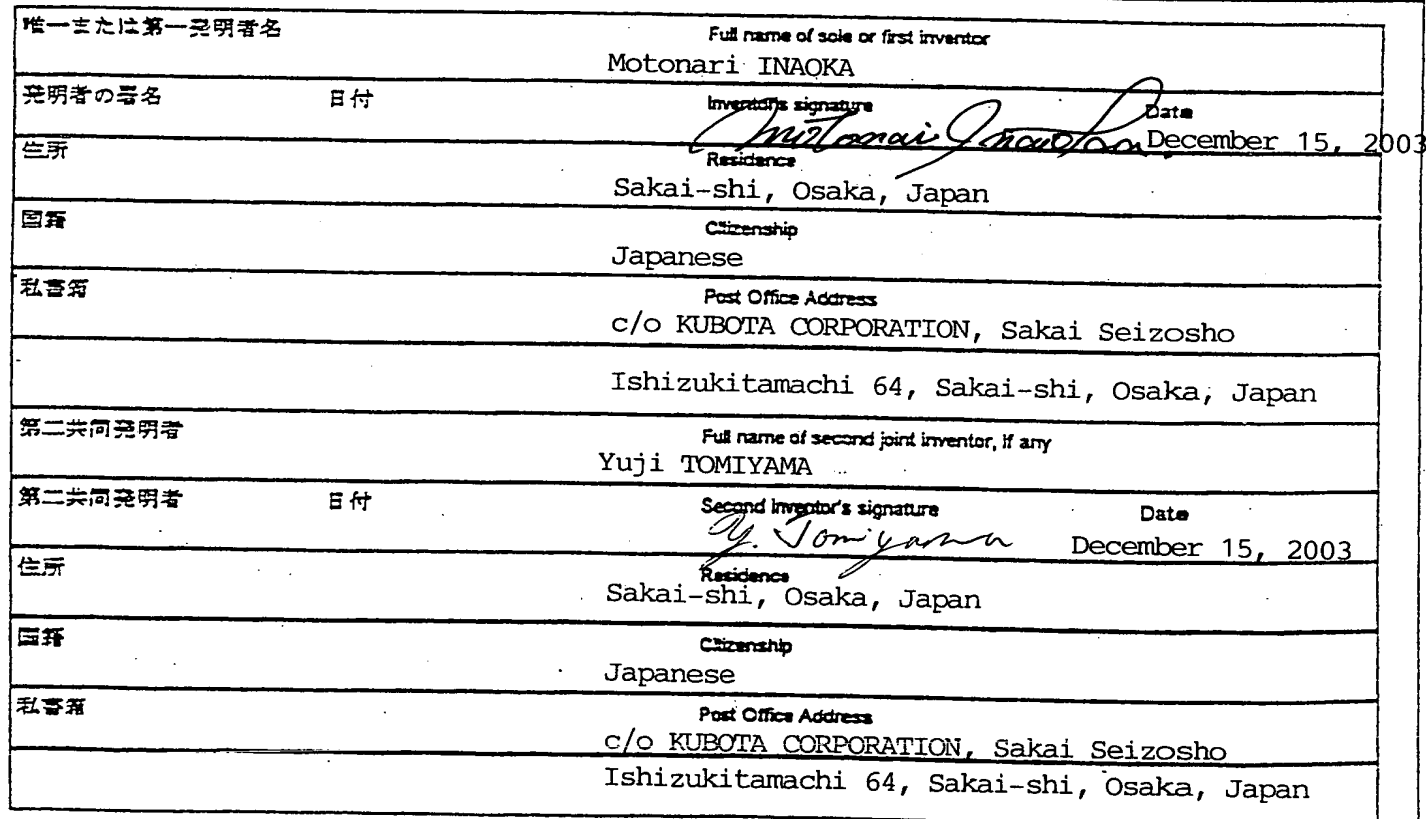 唯一または第一発明者名 Full name of sole or first inventor
Motonari INAOKA
発明者の署名 日付 Inventor's signature Date
Motonari Inaoka December 15, 2003
住所 Residence
Sakai-shi, Osaka, Japan
国籍 Citizenship
Japanese
私書箱 Post Office Address
c/o KUBOTA CORPORATION, Sakai Seizosho
Ishizukitamachi 64, Sakai-shi, Osaka, Japan
第二共同発明者 Full name of second joint inventor, if any
Yuji TOMIYAMA
第二共同発明者 日付 Second inventor's signature Date
Y. Tomiyama December 15, 2003
住所 Residence
Sakai-shi, Osaka, Japan
国籍 Citizenship
Japanese
私書箱 Post Office Address
c/o KUBOTA CORPORATION, Sakai Seizosho
Ishizukitamachi 64, Sakai-shi, Osaka, Japan